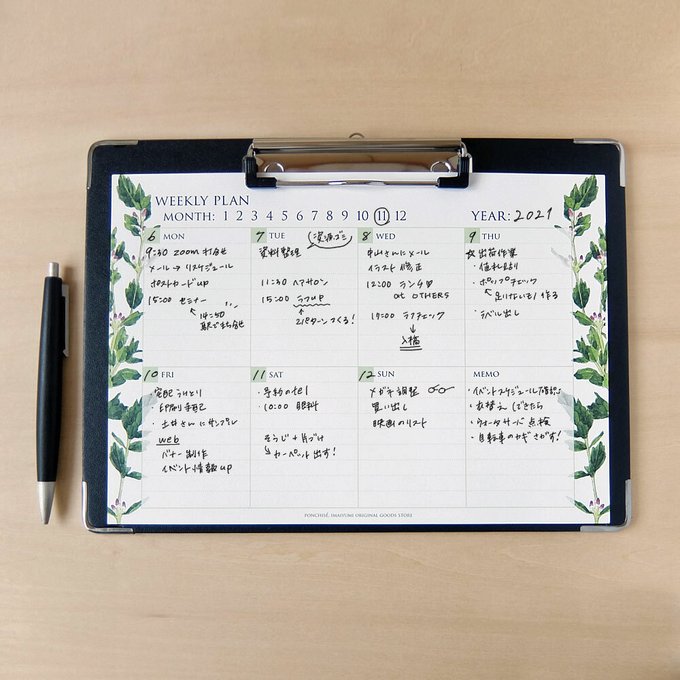 WEEKLY PLAN
MONTH: 1 2 3 4 5 6 7 8 9 10 11 12
YEAR: 2021
6 MON
9:30 zoom 打合せ
メール → リスケジュール
ポストカードup
15:00 セミナー
14:50
駅で待ち合せ
7 TUE
資源ゴミ
資料整理
11:30 ヘアサロン
15:00 ラフup
2パターンつくる!
8 WED
中山さんにメール
イラスト修正
12:00 ランチ
at OTHERS
19:00 ラフチェック
↓
入稿
9 THU
☆出荷作業
・値札はり
・ポップチェック
足りないもの作る
・ラベル出し
10 FRI
宅配うけとり
・印刷手配
・土井さんにサンプル
web
バナー制作
イベント情報up
11 SAT
・予約のtel
・10:00 眼科
そうじ+片づけ
カーペット出す!
12 SUN
メガネ調整
買い出し
映画のリスト
MEMO
・イベントスケジュール確認
・衣替え(できたら
・ウォーターサーバー点検
・自転車のカギさがす!
PONCHISÉ, IMAIYUMI ORIGINAL GOODS STORE